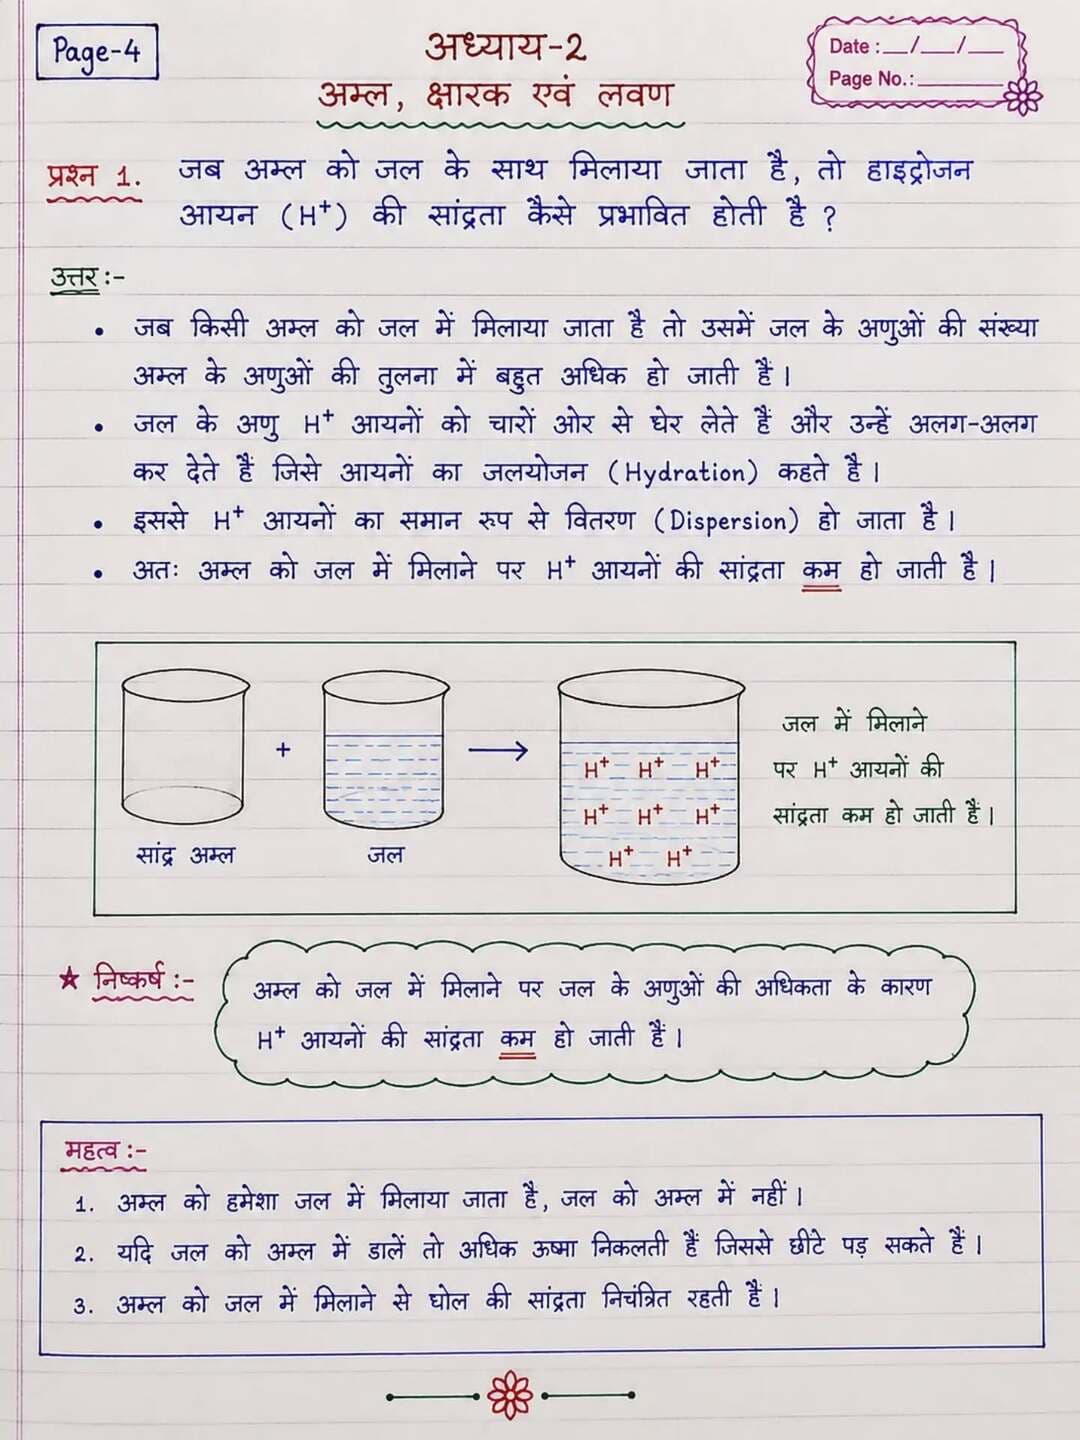 Page-4
अध्याय-2
अम्ल, क्षारक एवं लवण
Date : __/__/__
Page No.: ________
प्रश्न 1. जब अम्ल को जल के साथ मिलाया जाता है, तो हाइड्रोजन
आयन (H⁺) की सांद्रता कैसे प्रभावित होती है ?
उत्तर :-
• जब किसी अम्ल को जल में मिलाया जाता है तो उसमें जल के अणुओं की संख्या
अम्ल के अणुओं की तुलना में बहुत अधिक हो जाती है।
• जल के अणु H⁺ आयनों को चारों ओर से घेर लेते हैं और उन्हें अलग-अलग
कर देते हैं जिसे आयनों का जलयोजन (Hydration) कहते है।
• इससे H⁺ आयनों का समान रुप से वितरण (Dispersion) हो जाता है।
• अतः अम्ल को जल में मिलाने पर H⁺ आयनों की सांद्रता कम हो जाती है।
+
सांद्र अम्ल
जल
H⁺ H⁺ H⁺
H⁺ H⁺ H⁺
H⁺ H⁺
जल में मिलाने
पर H⁺ आयनों की
सांद्रता कम हो जाती हैं।
★ निष्कर्ष :-
अम्ल को जल में मिलाने पर जल के अणुओं की अधिकता के कारण
H⁺ आयनों की सांद्रता कम हो जाती हैं।
महत्व :-
1. अम्ल को हमेशा जल में मिलाया जाता है, जल को अम्ल में नहीं।
2. यदि जल को अम्ल में डालें तो अधिक ऊष्मा निकलती हैं जिससे छीटे पड़ सकते हैं।
3. अम्ल को जल में मिलाने से घोल की सांद्रता निचंत्रित रहती हैं।